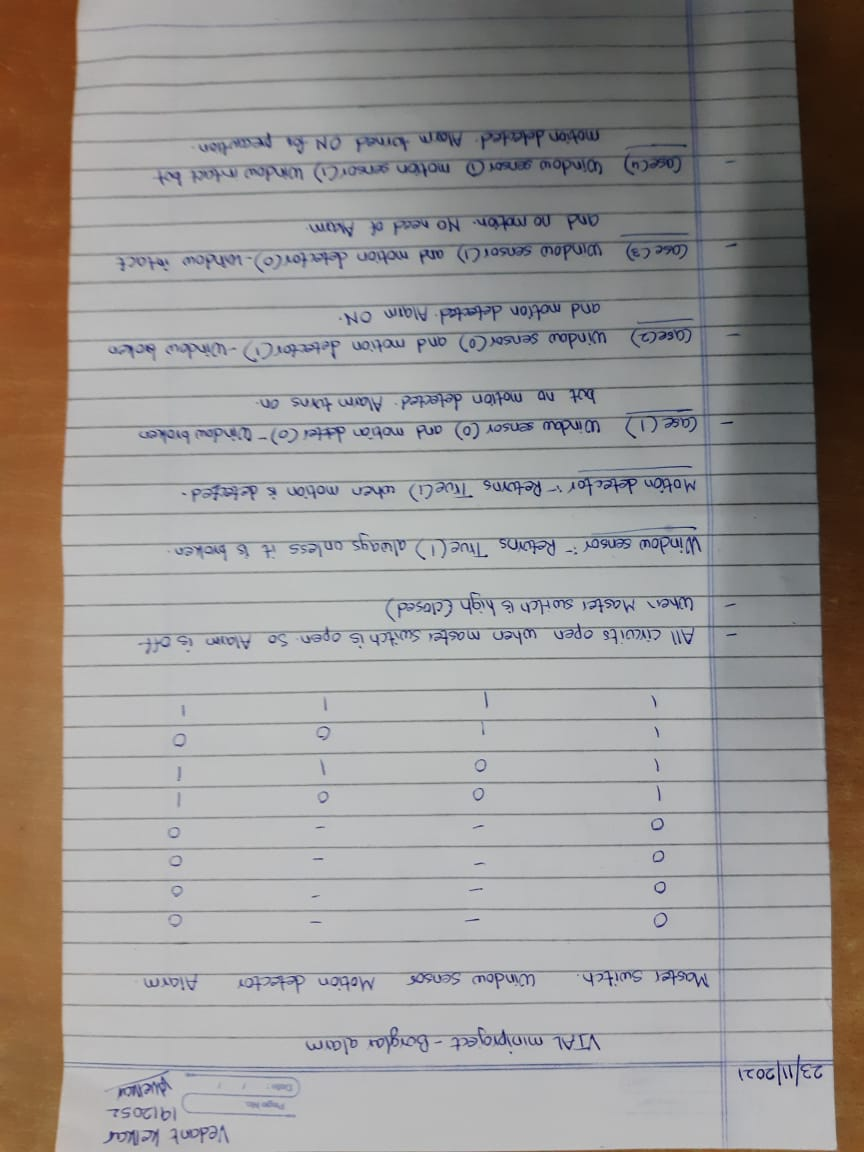 Vedant Kelkar
1912052
Page No.
Date: / /
23/11/2021
VIAL miniproject - Burglar alarm
Master switch. Window sensor Motion detector Alarm
0 - - 0
0 - - 0
0 - - 0
0 - - 0
1 0 0 1
1 0 1 1
1 1 0 0
1 1 1 1
- All circuits open when master switch is open. So Alarm is off
- When Master switch is high (closed)
Window sensor :- Returns True(1) always unless it is broken.
Motion detector :- Returns True(1) when motion is detected.
- Case(1) Window sensor (0) and motion detter(0) - Window broken
but no motion detected. Alarm turns on.
- Case(2) Window sensor(0) and motion detector(1) - Window broken
and motion detected. Alarm ON.
- Case(3) Window sensor(1) and motion detector(0) - Window intact
and no motion. No need of Alarm.
- Case(4) Window sensor(1) motion sensor(1) Window intact but
motion detected. Alarm turned ON for precaution.